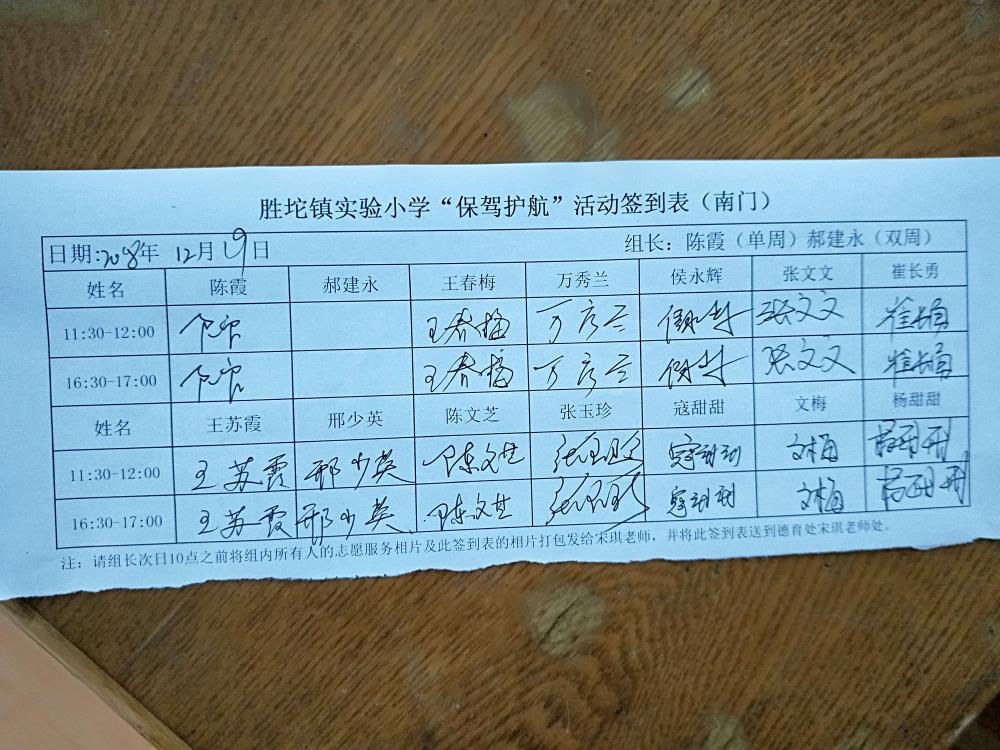 胜坨镇实验小学“保驾护航”活动签到表（南门）
日期:2018年 12月19日 组长：陈霞（单周）郝建永（双周）
姓名 陈霞 郝建永 王春梅 万秀兰 侯永辉 张文文 崔长勇
11:30-12:00 王春梅 万秀兰 张文文 崔长勇
16:30-17:00 王春梅 万秀兰 张文文 崔长勇
姓名 王苏霞 邢少英 陈文芝 张玉珍 寇甜甜 文梅 杨甜甜
11:30-12:00 王苏霞 邢少英 陈文芝 张玉珍 寇甜甜 文梅 杨甜甜
16:30-17:00 王苏霞 邢少英 陈文芝 张玉珍 寇甜甜 文梅 杨甜甜
注：请组长次日10点之前将组内所有人的志愿服务相片及此签到表的相片打包发给宋琪老师，并将此签到表送到德育处宋琪老师处。